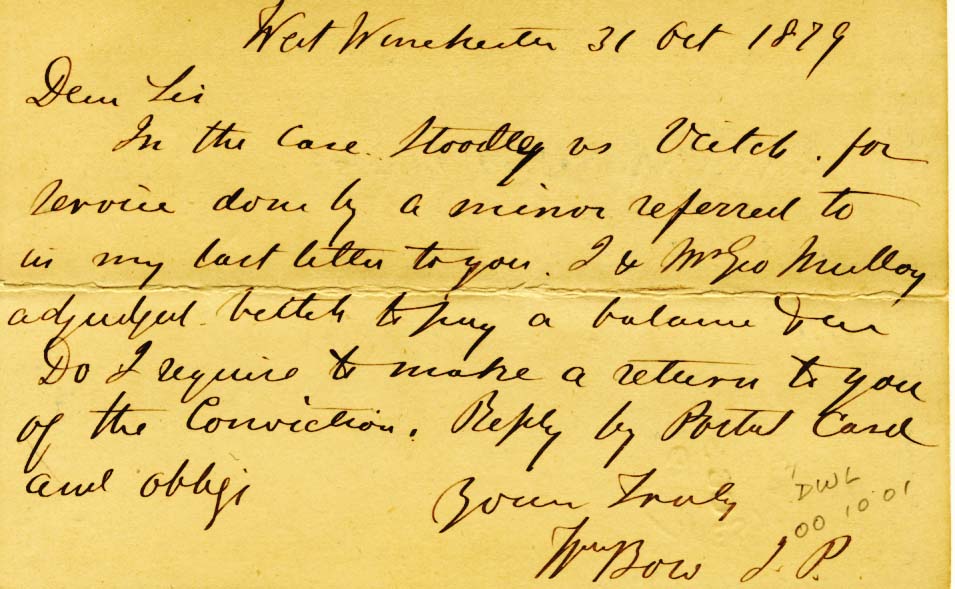 West Winchester 31 Oct 1879
Dear Sir
In the Case Stoodley vs Veitch. for
service done by a minor referred to
in my last letter to you. I & Mr Geo Mulloy
adjudged Veitch to pay a balance due
Do I require to make a return to you
of the Conviction. Reply by Postal Card
and oblige
Yours Truly
Wm Bow J.P.
DWL
00 10 01